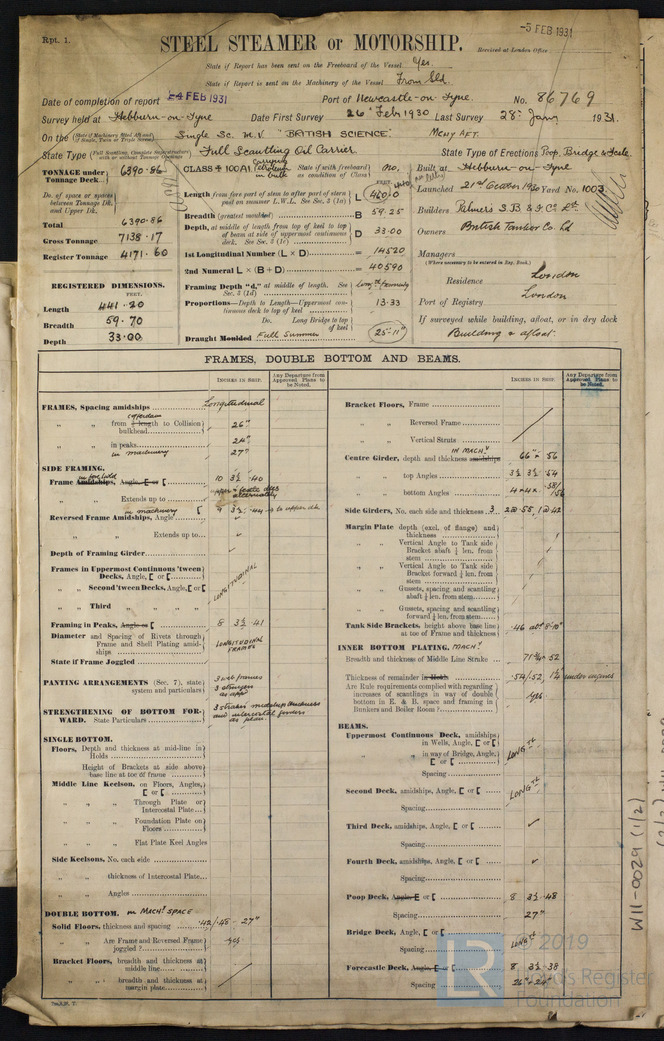 Rpt. 1.
-5 FEB 1931
STEEL STEAMER or MOTORSHIP.
Received at London Office
State if Report has been sent on the Freeboard of the Vessel Yes.
State if Report is sent on the Machinery of the Vessel From Sld.
Date of completion of report -4 FEB 1931 Port of Newcastle-on-Tyne. No. 86769
Survey held at Hebburn-on-Tyne Date First Survey 26 Feb 1930 Last Survey 28 Jany 1931.
On the (State if Machinery Fitted Aft and if Single, Twin or Triple Screw) Single Sc. M.V "BRITISH SCIENCE" Mchy Aft.
State Type (Full Scantling, Complete Superstructure with or without Tonnage Openings) Full Scantling Oil Carrier. State Type of Erections Poop, Bridge & Fcsle.
TONNAGE under Tonnage Deck 6390.86
Do. of space or spaces between Tonnage Dk. and Upper Dk.
Total 6390.86
Gross Tonnage 7138.17
Register Tonnage 4171.60
REGISTERED DIMENSIONS.
FEET.
Length 441.20
Breadth 59.70
Depth 33.00
CLASS 100A1 Carrying Petroleum in bulk State if with freeboard as condition of Class No.
FEET.
Length from fore part of stem to after part of stern post on summer L.W.L. See Sec. 3 (1a) L 440.0
Breadth (greatest moulded) B 59.25
Depth, at middle of length from top of keel to top of beam at side of uppermost continuous deck. See Sec. 3 (1c) D 33.00
1st Longitudinal Number (L × D) = 14520
2nd Numeral L × (B + D) = 40590
Framing Depth "d," at middle of length. See Sec. 3 (1d) Longl Framing
Proportions—Depth to Length—Uppermost continuous deck to top of keel 13.33
Do. Long Bridge to top of keel
Draught Moulded Full Summer 25-11"
Built at Hebburn-on-Tyne
Launched 21st October 1930 Yard No. 1003
Builders Palmer's S.B & I. Co. Ld.
Owners British Tanker Co. Ld
Managers
(Where necessary to be entered in Reg. Book.)
Residence London
Port of Registry London
If surveyed while building, afloat, or in dry dock
Building & afloat.
FRAMES, DOUBLE BOTTOM AND BEAMS.
INCHES IN SHIP. Any Departure from Approved Plans to be Noted.
FRAMES, Spacing amidships Longitudinal
" " from cofferdam ⅕ length to Collision bulkhead 26"
" " in peaks 24"
in machinery 27"
SIDE FRAMING.
Frame Amidships, Angle, [ or [ in fore hold 10 3½ .40
Extends up to alternately
in machinery [ 9 3½ .44 to upper dk
Reversed Frame Amidships, Angle
" " Extends up to
Depth of Framing Girder
Frames in Uppermost Continuous 'tween Decks, Angle, [ or [
" " Second 'tween Decks, Angle, [ or [
" " Third " " "
LONGITUDINAL
Framing in Peaks, Angle or [ 8 3½ .41
Diameter and Spacing of Rivets through Frame and Shell Plating amidships LONGITUDINAL FRAMES
State if Frame Joggled
PANTING ARRANGEMENTS (Sec. 7), state system and particulars 3 web frames 3 stringers as appd
STRENGTHENING OF BOTTOM FORWARD. State Particulars 3 strakes midship thickness and intercostal girders as plan
SINGLE BOTTOM.
Floors, Depth and thickness at mid-line in Holds
Height of Brackets at side above base line at toe of frame
Middle Line Keelson, on Floors, Angles, [ or [
" " " Through Plate or Intercostal Plate
" " " Foundation Plate on Floors
" " " Flat Plate Keel Angles
Side Keelsons, No. each side
" " thickness of Intercostal Plate
" " Angles
DOUBLE BOTTOM. in Machy Space
Solid Floors, thickness and spacing .42/.48 - 27"
" " Are Frame and Reversed Frame joggled? yes
Bracket Floors, breadth and thickness at middle line
" " breadth and thickness at margin plate
INCHES IN SHIP. Any Departure from Approved Plans to be Noted.
Bracket Floors, Frame
" " Reversed Frame
" " Vertical Struts
Centre Girder, depth and thickness amidships IN MACHY 66" × .56
" " top Angles 3½ 3½ .54
" " bottom Angles 4 × 4 × .58/.56
Side Girders, No. each side and thickness 3. 2@.55, 1@.42
Margin Plate depth (excl. of flange) and thickness
" " Vertical Angle to Tank side Bracket abaft ¼ len. from stem
" " Vertical Angle to Tank side Bracket forward ¼ len. from stem
" " Gussets, spacing and scantling abaft ¼ len. from stem
" " Gussets, spacing and scantling forward ¼ len. from stem
Tank Side Brackets, height above base line at toe of Frame and thickness .46 abt 8'-10"
INNER BOTTOM PLATING. MACHY
Breadth and thickness of Middle Line Strake 71¾ × .52
Thickness of remainder in Hold .54/.52, 1¼ under engines
Are Rule requirements complied with regarding increases of scantlings in way of double bottom in E. & B. space and framing in Bunkers and Boiler Room? yes
BEAMS.
Uppermost Continuous Deck, amidships in Wells, Angle, [ or [ LONGL
" " in way of Bridge, Angle, [ or [
Spacing
Second Deck, amidships, Angle, [ or [ LONGL
Spacing
Third Deck, amidships, Angle, [ or [
Spacing
Fourth Deck, amidships, Angle, [ or [
Spacing
Poop Deck, Angle, [ or [ 8 3½ .48
Spacing 27"
Bridge Deck, Angle, [ or [ LONGL
Spacing
Forecastle Deck, Angle, [ or [ 8 3½ .38
Spacing 26" & 24"
W11-0029 (1/2)
© 2019
Lloyd's Register
Foundation
LR